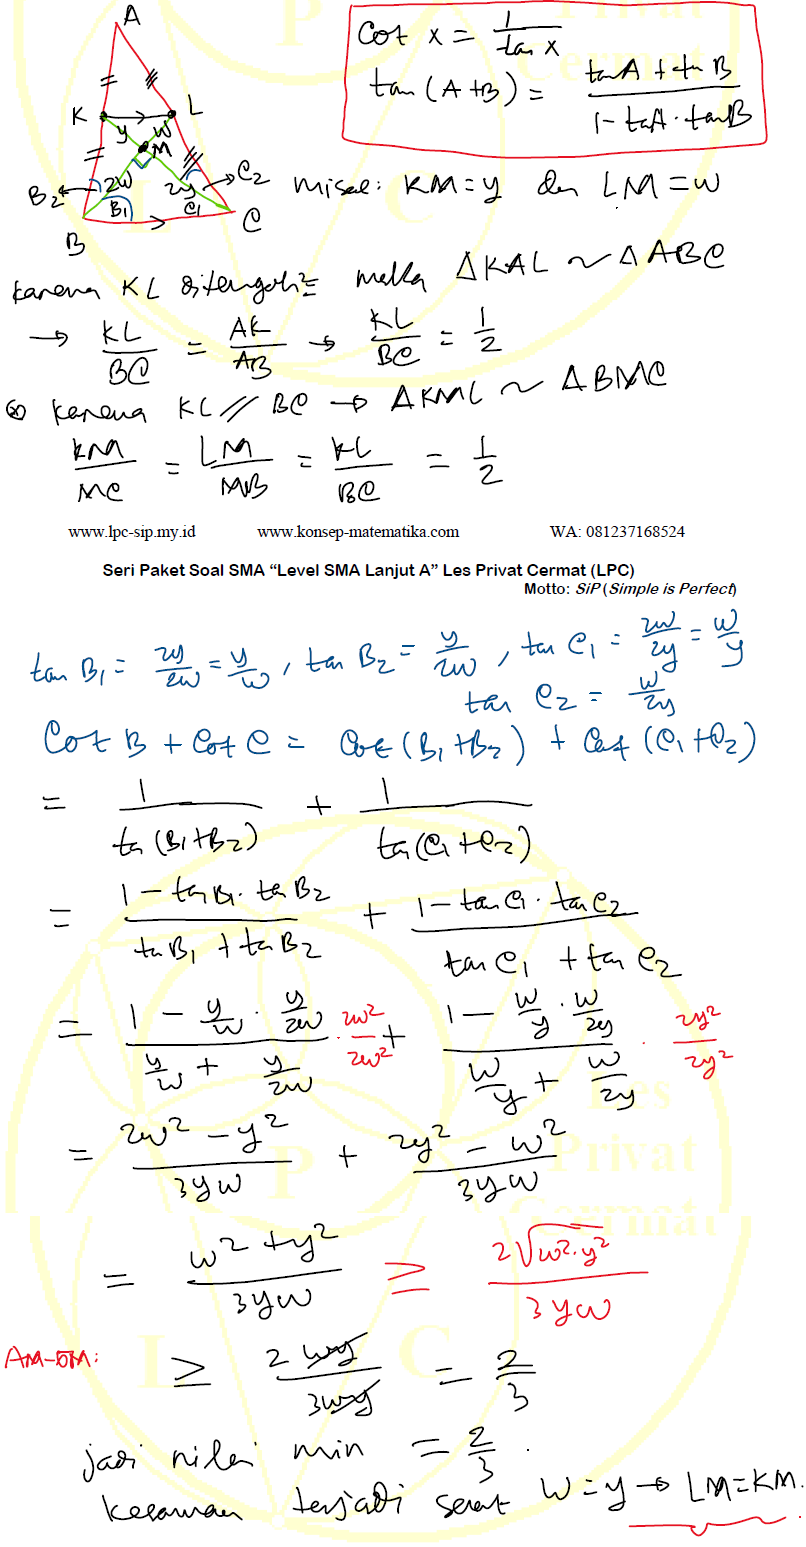 A
K L
y w
M
2w 2y
B₂ B₁ C₁ C₂
B C
Cot x = 1/tan x
tan (A+B) = (tanA + tan B)/(1 - tanA . tanB)
misal: KM = y dan LM = w
karena KL ditengah² maka ΔKAL ~ ΔABC
→ KL/BC = AK/AB → KL/BC = 1/2
karena KL // BC → ΔKML ~ ΔBMC
KM/MC = LM/MB = KL/BC = 1/2
www.lpc-sip.my.id www.konsep-matematika.com WA: 081237168524
Seri Paket Soal SMA “Level SMA Lanjut A” Les Privat Cermat (LPC)
Motto: SiP (Simple is Perfect)
tan B₁ = 2y/2w = y/w , tan B₂ = y/2w , tan C₁ = 2w/2y = w/y
tan C₂ = w/2y
Cot B + Cot C = Cot (B₁+B₂) + Cot (C₁+C₂)
= 1/tan (B₁+B₂) + 1/tan (C₁+C₂)
= (1 - tan B₁ . tan B₂)/(tan B₁ + tan B₂) + (1 - tan C₁ . tan C₂)/(tan C₁ + tan C₂)
= (1 - y/w . y/2w)/(y/w + y/2w) . 2w²/2w² + (1 - w/y . w/2y)/(w/y + w/2y) . 2y²/2y²
= (2w² - y²)/3yw + (2y² - w²)/3yw
= (w² + y²)/3yw ≥ 2√(w².y²)/3yw
AM-GM: ≥ 2wy/3wy = 2/3
jadi nilai min = 2/3 .
kesamaan terjadi saat w = y → LM = KM.
Les
Privat
Cermat
L P C